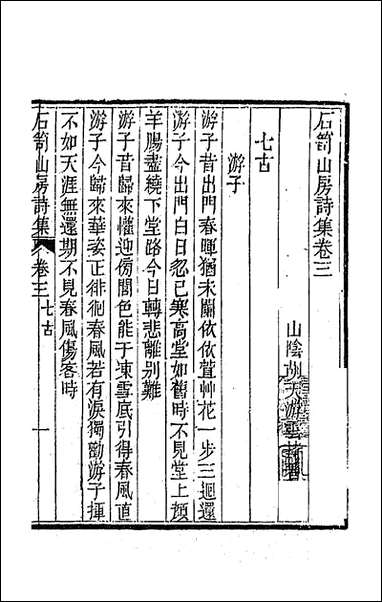 石笥山房詩集卷三
山陰胡天游雲持著
七古
游子
游子昔出門春暉猶未闌依依萱艸花一步三迴還
游子今出門白日忽已寒高堂如舊時不見堂上顏
羊腸盡繞下堂路今日轉悲離别難
游子昔歸來懽迎傍閭色能于凍雪底引得春風直
游子今歸來華姿正徘徊春風若有淚獨勸游子揮
不如天涯無還期不見春風傷客時
石笥山房詩集
卷三
七古
一